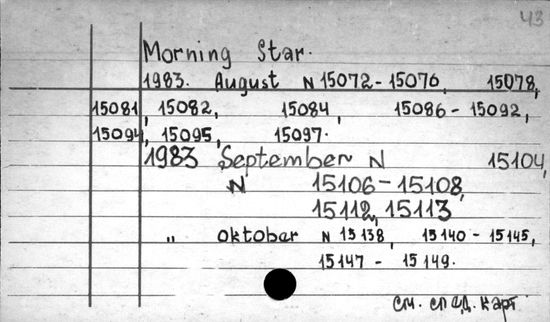 43
Morning Star.
1983. August N 15072 - 15076, 15078,
15081, 15082, 15084, 15086 - 15092,
15094, 15095, 15097.
1983 September N 15104,
N 15106 - 15108,
15112, 15113
„ oktober N 15138, 15140 - 15145,
15147 - 15149.
см. след. карт